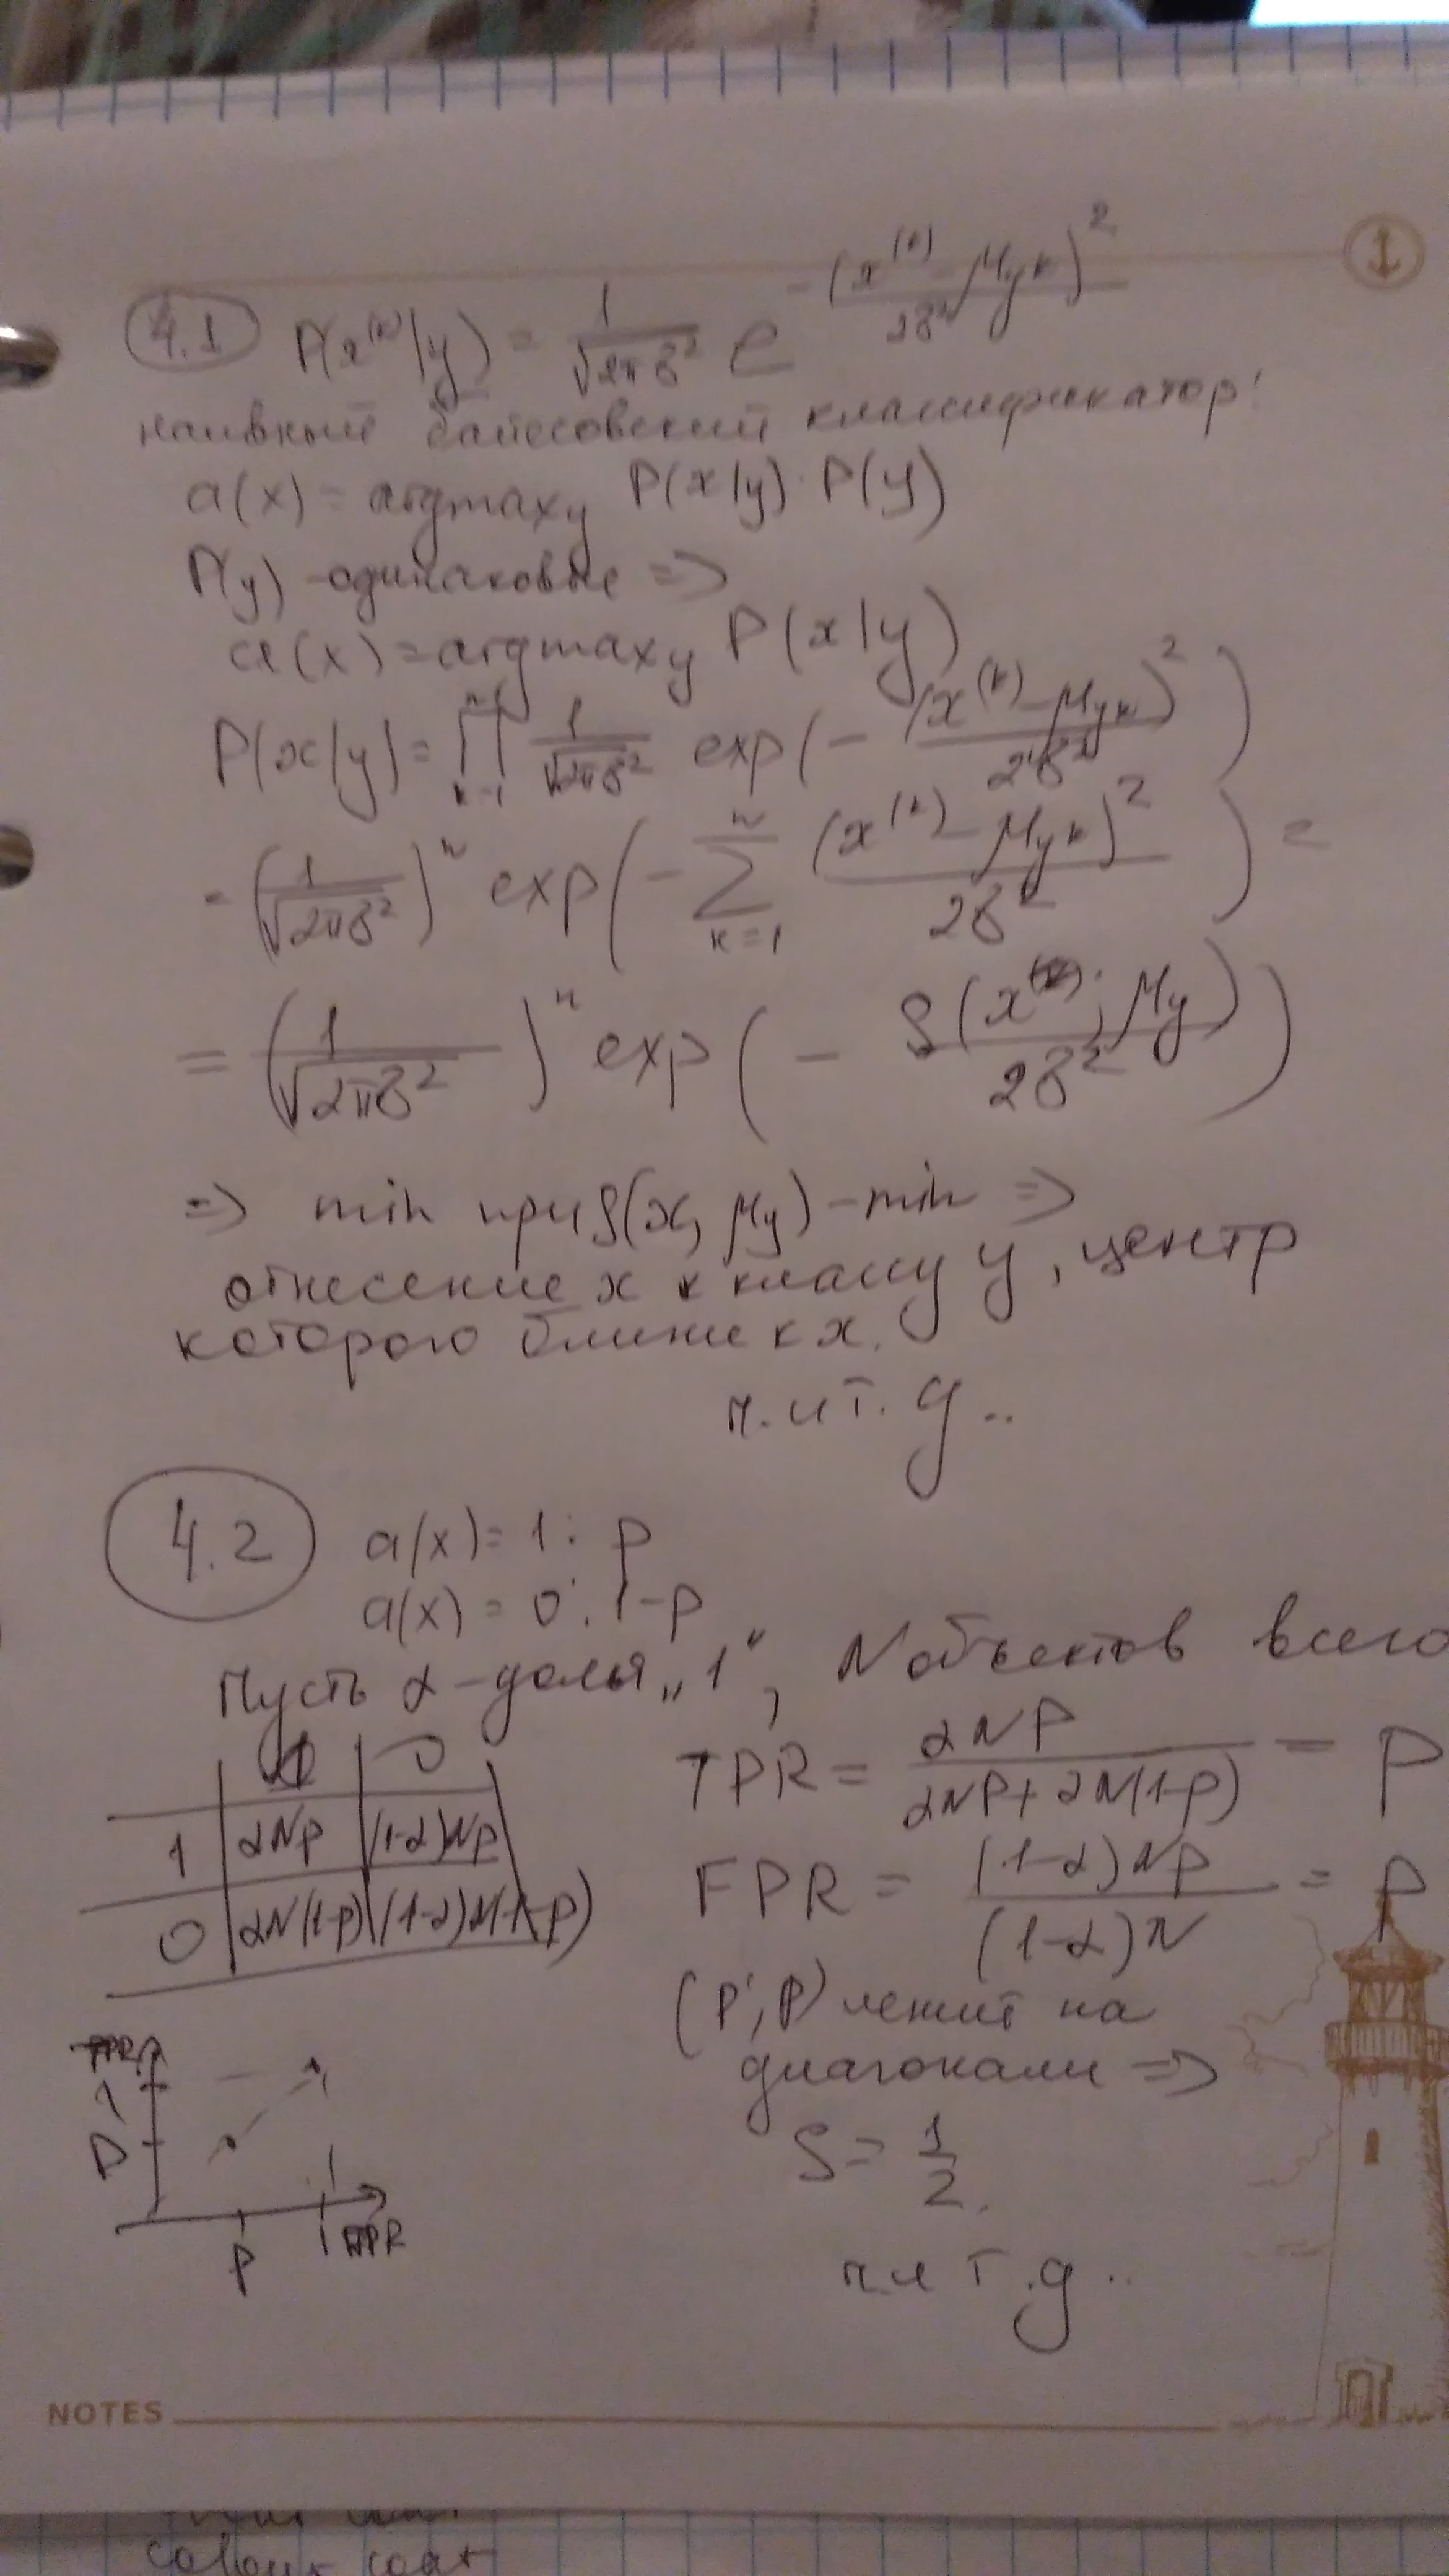 4.1 P(x^(k)|y) = 1/√(2πσ²) e^(-(x^(k) - μ_yk)²/2σ²)
наивный байесовский классификатор:
a(x) = argmax_y P(x|y)·P(y)
P(y) - одинаковые =>
a(x) = argmax_y P(x|y)
P(x|y) = ∏_{k=1}^{n} 1/√(2πσ²) exp(- (x^(k) - μ_yk)²/2σ²)
= (1/√(2πσ²))^n exp(- ∑_{k=1}^{n} (x^(k) - μ_yk)²/2σ²) =
= (1/√(2πσ²))^n exp(- ρ(x; μ_y)/2σ²)
=> min при ρ(x, μ_y) - min =>
отнесение x к классу y, центр
которого ближе к x.
ч.и т.д..
4.2 a(x) = 1: p
a(x) = 0: 1-p
Пусть α - долья „1“, N объектов всего
1 0
1 αNp (1-α)Np
0 αN(1-p) (1-α)N(1-p)
TPR = αNP/(αNP + αN(1-p)) = P
FPR = (1-α)Np/((1-α)N) = P
(P; P) лежит на
диагонали =>
S = 1/2.
ч.и т.д..
1
P
P
1
FPR
NOTES
colour coat